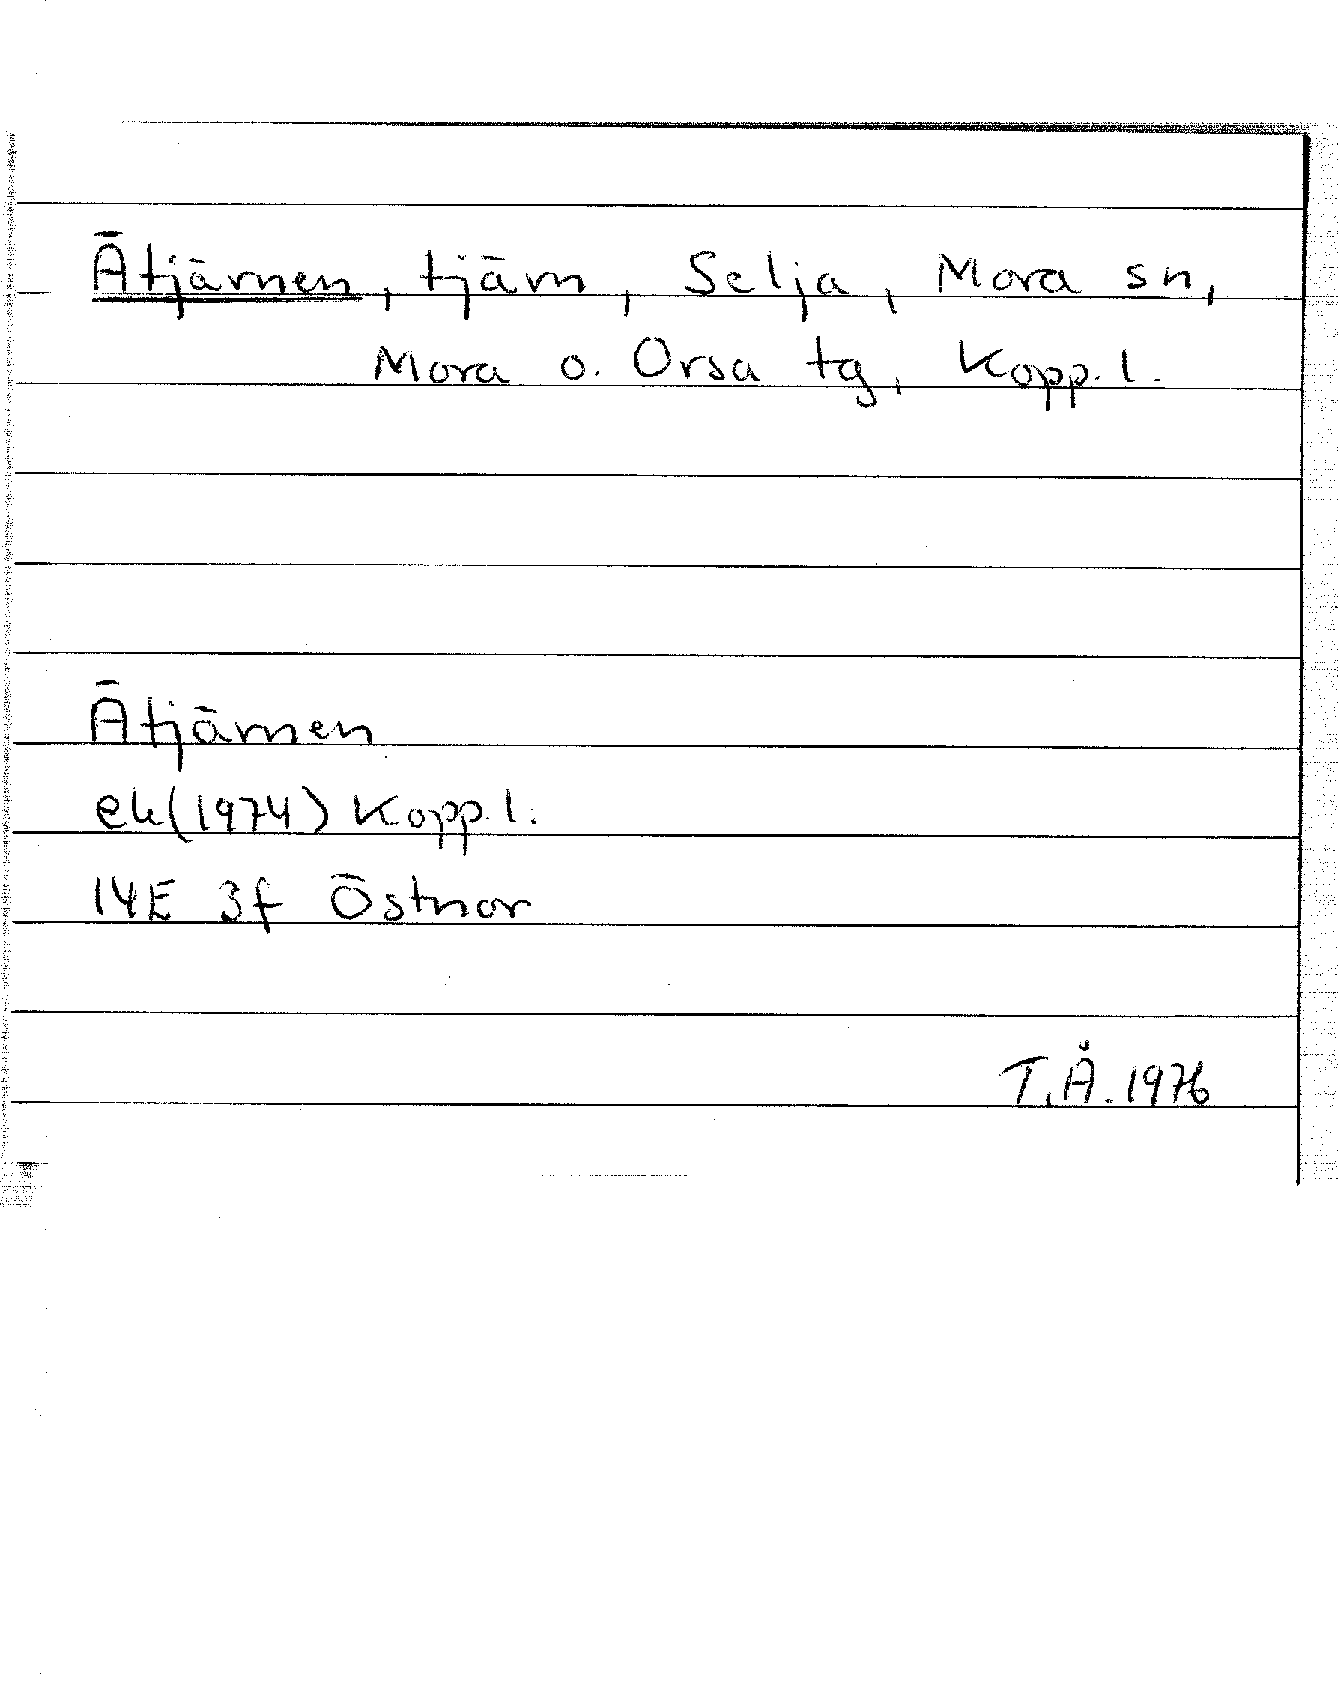 Ätjärnen, tjärn, Selja, Mora sn,
Mora o. Orsa tg, Kopp. l.
Ätjärnen
ek (1974) Kopp. l.
14E 3f Östnor
T.Å. 1976